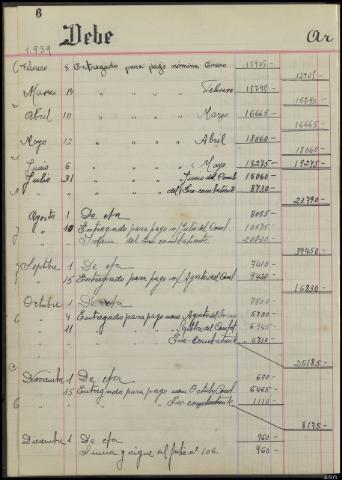 6
Debe
1.939
Febrero 8 Entregado para pago nómina Enero 13905-
13905-
Marzo 14 " " " " Febrero 15795-
15795-
Abril 10 " " " " Marzo 16665-
16665-
Mayo 12 " " " " Abril 18060-
18060-
Junio 6 " " " " Mayo 19275- 19275-
Julio 31 " " " " Junio del 15060-
" " " " " " del Ex-combatiente 8730-
23790-
Agosto 1 De cta 8055-
" 10 Entregado para pago n/ Julio del 10575-
del Ex combatiente 20820-
39450-
Septbre 1 De cta 7410-
" 15 Entregado para pago n/ Agosto del 9420-
16830-
Octubre 1 De cta 7800-
" 4 Entregado para pago nom. Agosto del 5730-
" 11 " " " " Septbre del 6945-
Ex-combatiente 4710-
25185-
Noviembre 1 De cta 600-
" 15 Entregado para pago nom Octubre 6465-
" " " " " " Ex-combatiente 1110-
8175-
Diciembre 1 De cta 960-
Suma y sigue al folio nº 106. 960-